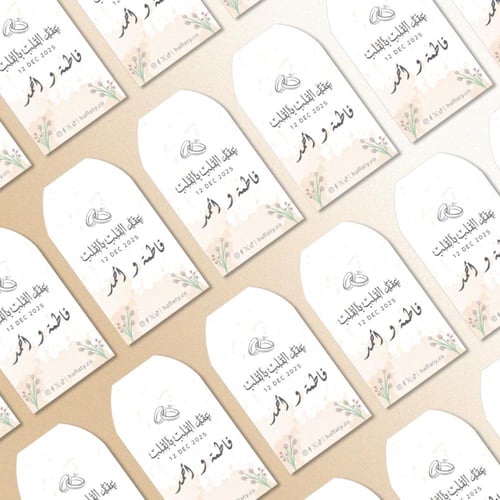 عقد القلب بالقلب
12 DEC 2025
فاطمة و احمد
haflaty.co